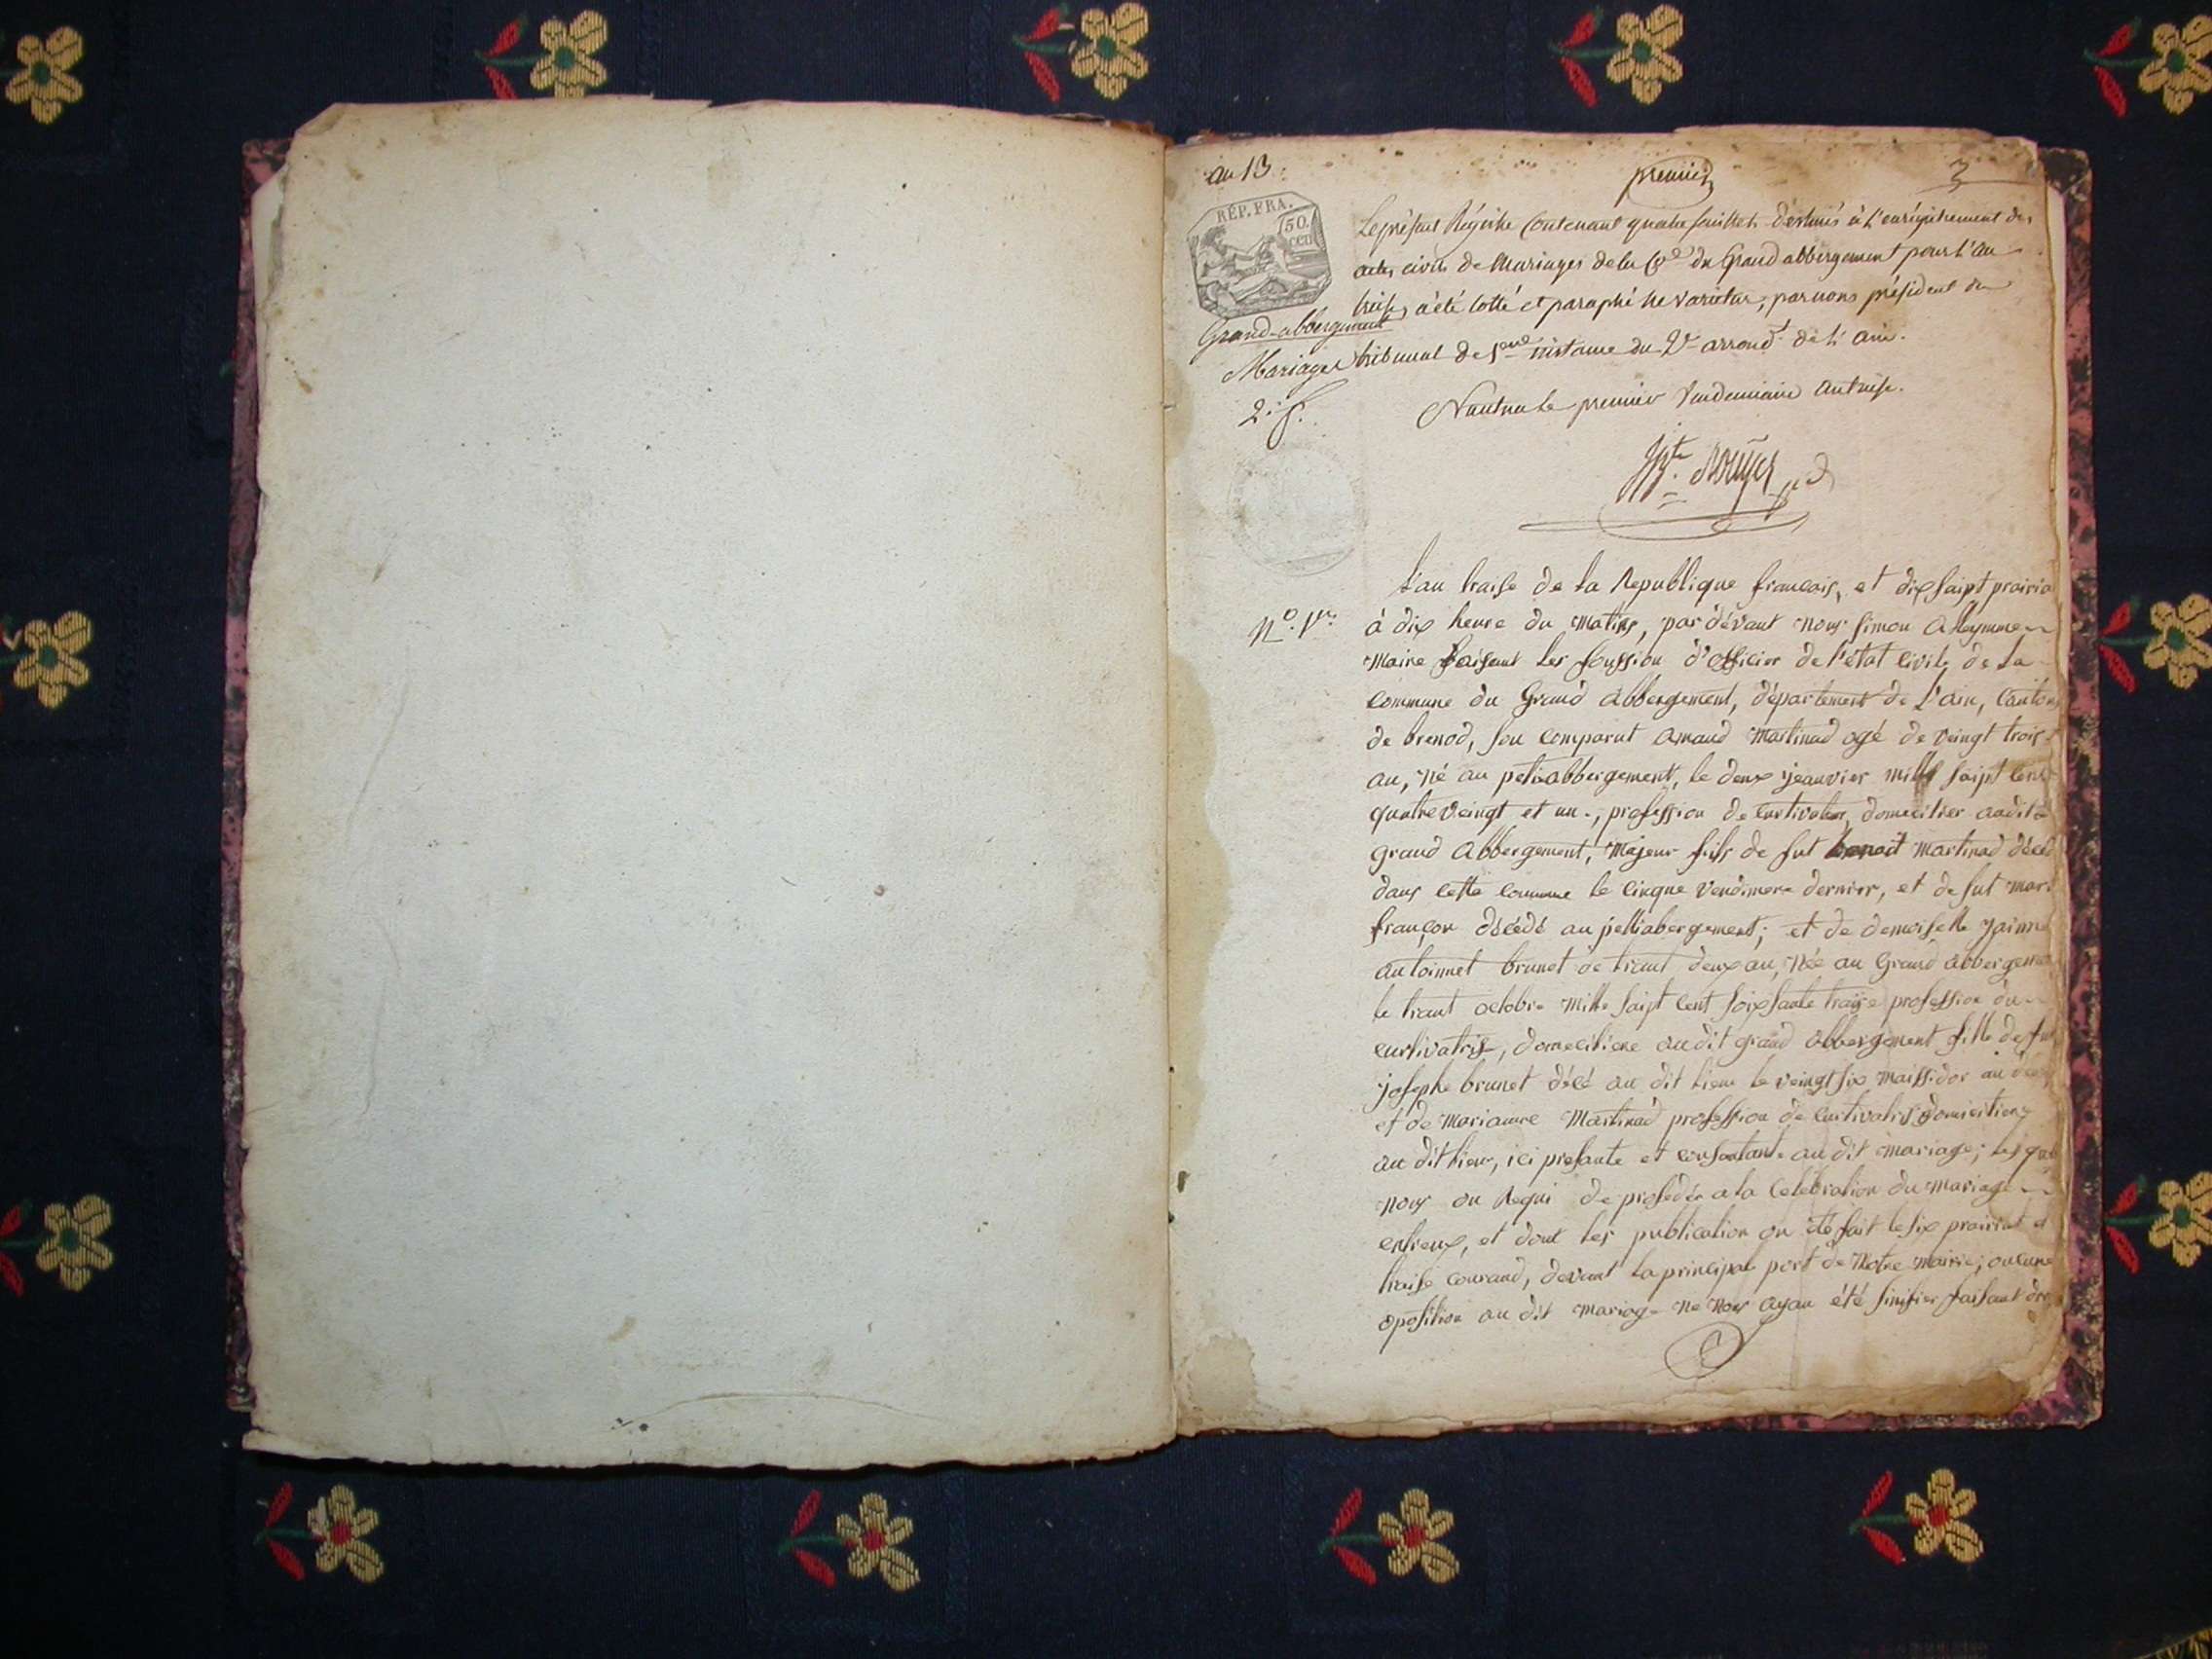 au 13
premier
3
RÉP. FRA.
50.
CEN
Le présent Régistre Contenant quatre feuillets destinés à l'enrégistrement des
actes civils de Mariages de la Cne du Grand abbergement pour l'an
treize, a été cotté et paraphé ne varietur, par nous président du
Grand-abbergement
Mariages
tribunal de 1ere instance du 2e arrondt de l'ain.
Nantua le premier Vendemiaire an treise.
2. f.
No. 1er
L'an traise de la Republique francais, et dix saipt prairia
à dix heure du matins, par dévant nous Simon alleymme
maire faisant les foussion d'officier de l'état civile de la
commune du Grand abbergement, département de l'ain, Canton
de brenod, son comparut amaud martinad agé de veingt trois
an, né au petitabbergement, le deux jeanvier mille saipt cent
quatre veingt et un, profession de curtivateur, domecilier audit
grand abbergement, majeur fils de fut benoit martinad décéd
dans cette commune le cinque vendimere dernier, et de fut mari
françon décédé au pettiabergement; et de demoiselle jainne
antoinnet brunet de traut deux an, née au Grand abbergemen
le traut octobre mille saipt cent soixsante traise profession du
curtivatris, domeciliere audit grand abbergement fille de fut
josephe brunet décé au dit lieu le veingt six maissidor an
et de marianne martinad profession de curtivatris domicilien
au dit lieu, ici presante et consantante au dit mariage; les quel
nous on requi de prosedér a la celébration du mariage
entreux, et dont les publication on été fait le six prairial et
traise courand, devant la principale port de notre mairie; aucune
oposition au dit mariage ne nous ayan été sinifier faisant dro